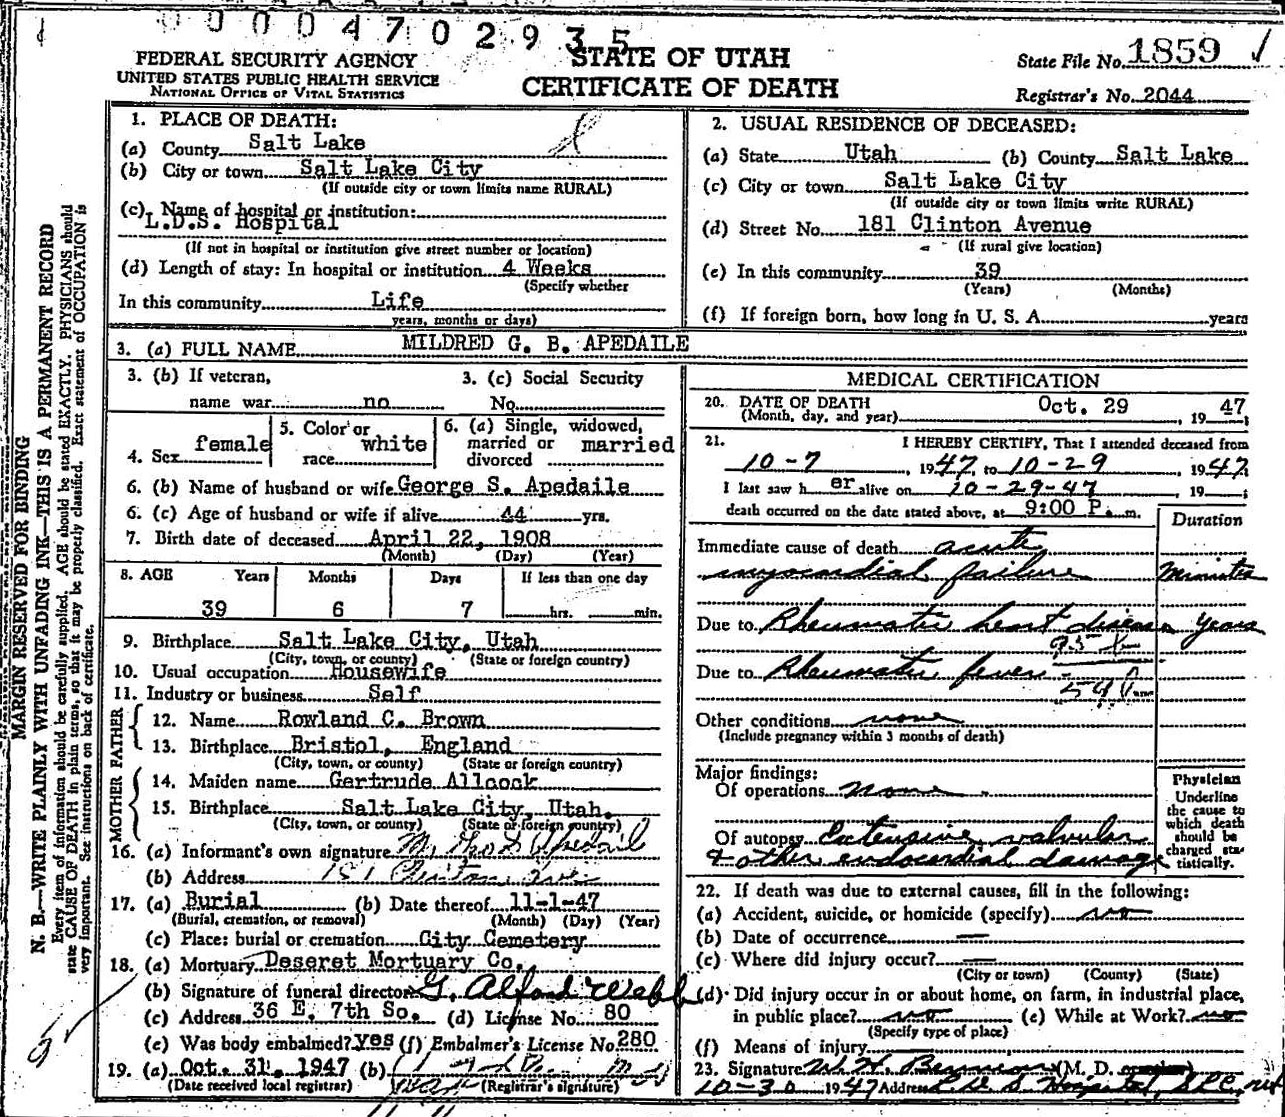 00004702935
FEDERAL SECURITY AGENCY
UNITED STATES PUBLIC HEALTH SERVICE
NATIONAL OFFICE OF VITAL STATISTICS
STATE OF UTAH
CERTIFICATE OF DEATH
State File No. 1859
Registrar's No. 2044
MARGIN RESERVED FOR BINDING
N. B.—WRITE PLAINLY WITH UNFADING INK—THIS IS A PERMANENT RECORD
Every item of information should be carefully supplied. AGE should be stated EXACTLY. PHYSICIANS should
state CAUSE OF DEATH in plain terms, so that it may be properly classified. Exact statement of OCCUPATION is
very important. See instructions on back of certificate.
1. PLACE OF DEATH:
(a) County Salt Lake
(b) City or town Salt Lake City
(If outside city or town limits name RURAL)
(c) Name of hospital or institution:
L.D.S. Hospital
(If not in hospital or institution give street number or location)
(d) Length of stay: In hospital or institution 4 Weeks
(Specify whether
In this community Life
years, months or days)
2. USUAL RESIDENCE OF DECEASED:
(a) State Utah (b) County Salt Lake
(c) City or town Salt Lake City
(If outside city or town limits write RURAL)
(d) Street No. 181 Clinton Avenue
(If rural give location)
(e) In this community 39
(Years) (Months)
(f) If foreign born, how long in U. S. A. years
3. (a) FULL NAME MILDRED G. B. APEDAILE
3. (b) If veteran, 3. (c) Social Security
name war no No.
4. Sex female 5. Color or race white 6. (a) Single, widowed, married or divorced married
6. (b) Name of husband or wife George S. Apedaile
6. (c) Age of husband or wife if alive 44 yrs.
7. Birth date of deceased April 22, 1908
(Month) (Day) (Year)
8. AGE Years Months Days If less than one day
39 6 7 hrs. min.
9. Birthplace Salt Lake City, Utah
(City, town, or county) (State or foreign country)
10. Usual occupation Housewife
11. Industry or business Self
FATHER
12. Name Rowland C. Brown
13. Birthplace Bristol, England
(City, town, or county) (State or foreign country)
MOTHER
14. Maiden name Gertrude Allcock
15. Birthplace Salt Lake City, Utah.
(City, town, or county) (State or foreign country)
16. (a) Informant's own signature Geo S Apedaile
(b) Address 181 Clinton Ave
17. (a) Burial (b) Date thereof 11-1-47
(Burial, cremation, or removal) (Month) (Day) (Year)
(c) Place: burial or cremation City Cemetery
18. (a) Mortuary Deseret Mortuary Co.
(b) Signature of funeral director G. Alford Webb
(c) Address 36 E. 7th So. (d) License No. 80
(e) Was body embalmed? yes (f) Embalmer's License No. 280
19. (a) Oct. 31, 1947 (b)
(Date received local registrar) (Registrar's signature)
MEDICAL CERTIFICATION
20. DATE OF DEATH Oct. 29 1947
(Month, day, and year)
21. I HEREBY CERTIFY, That I attended deceased from
10-7, 1947, to 10-29, 1947;
I last saw h er alive on 10-29-47, 19 ;
death occurred on the date stated above, at 9:00 P. m.
Duration
Immediate cause of death acute
myocardial failure Minutes
Due to Rheumatic heart disease years
Due to Rheumatic fever
Other conditions none
(Include pregnancy within 3 months of death)
Major findings:
Of operations none
Of autopsy Extensive valvular
& other endocardial damage
Physician
Underline
the cause to
which death
should be
charged sta-
tistically.
22. If death was due to external causes, fill in the following:
(a) Accident, suicide, or homicide (specify) no
(b) Date of occurrence —
(c) Where did injury occur? —
(City or town) (County) (State)
(d) Did injury occur in or about home, on farm, in industrial place,
in public place? no (e) While at Work? no
(Specify type of place)
(f) Means of injury —
23. Signature (M. D.
10-30 1947 Address L.D.S. Hospital, SLC, Ut